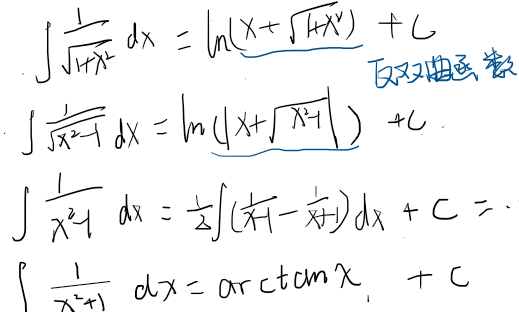 ∫ 1/√(1+x²) dx = ln(x + √(1+x²)) + C
反双曲函数
∫ 1/√(x²-1) dx = ln(|x + √(x²-1)|) + C
∫ 1/(x²-1) dx = 1/2 ∫(1/(x-1) - 1/(x+1)) dx + C = ..
∫ 1/(x²+1) dx = arctan x + C